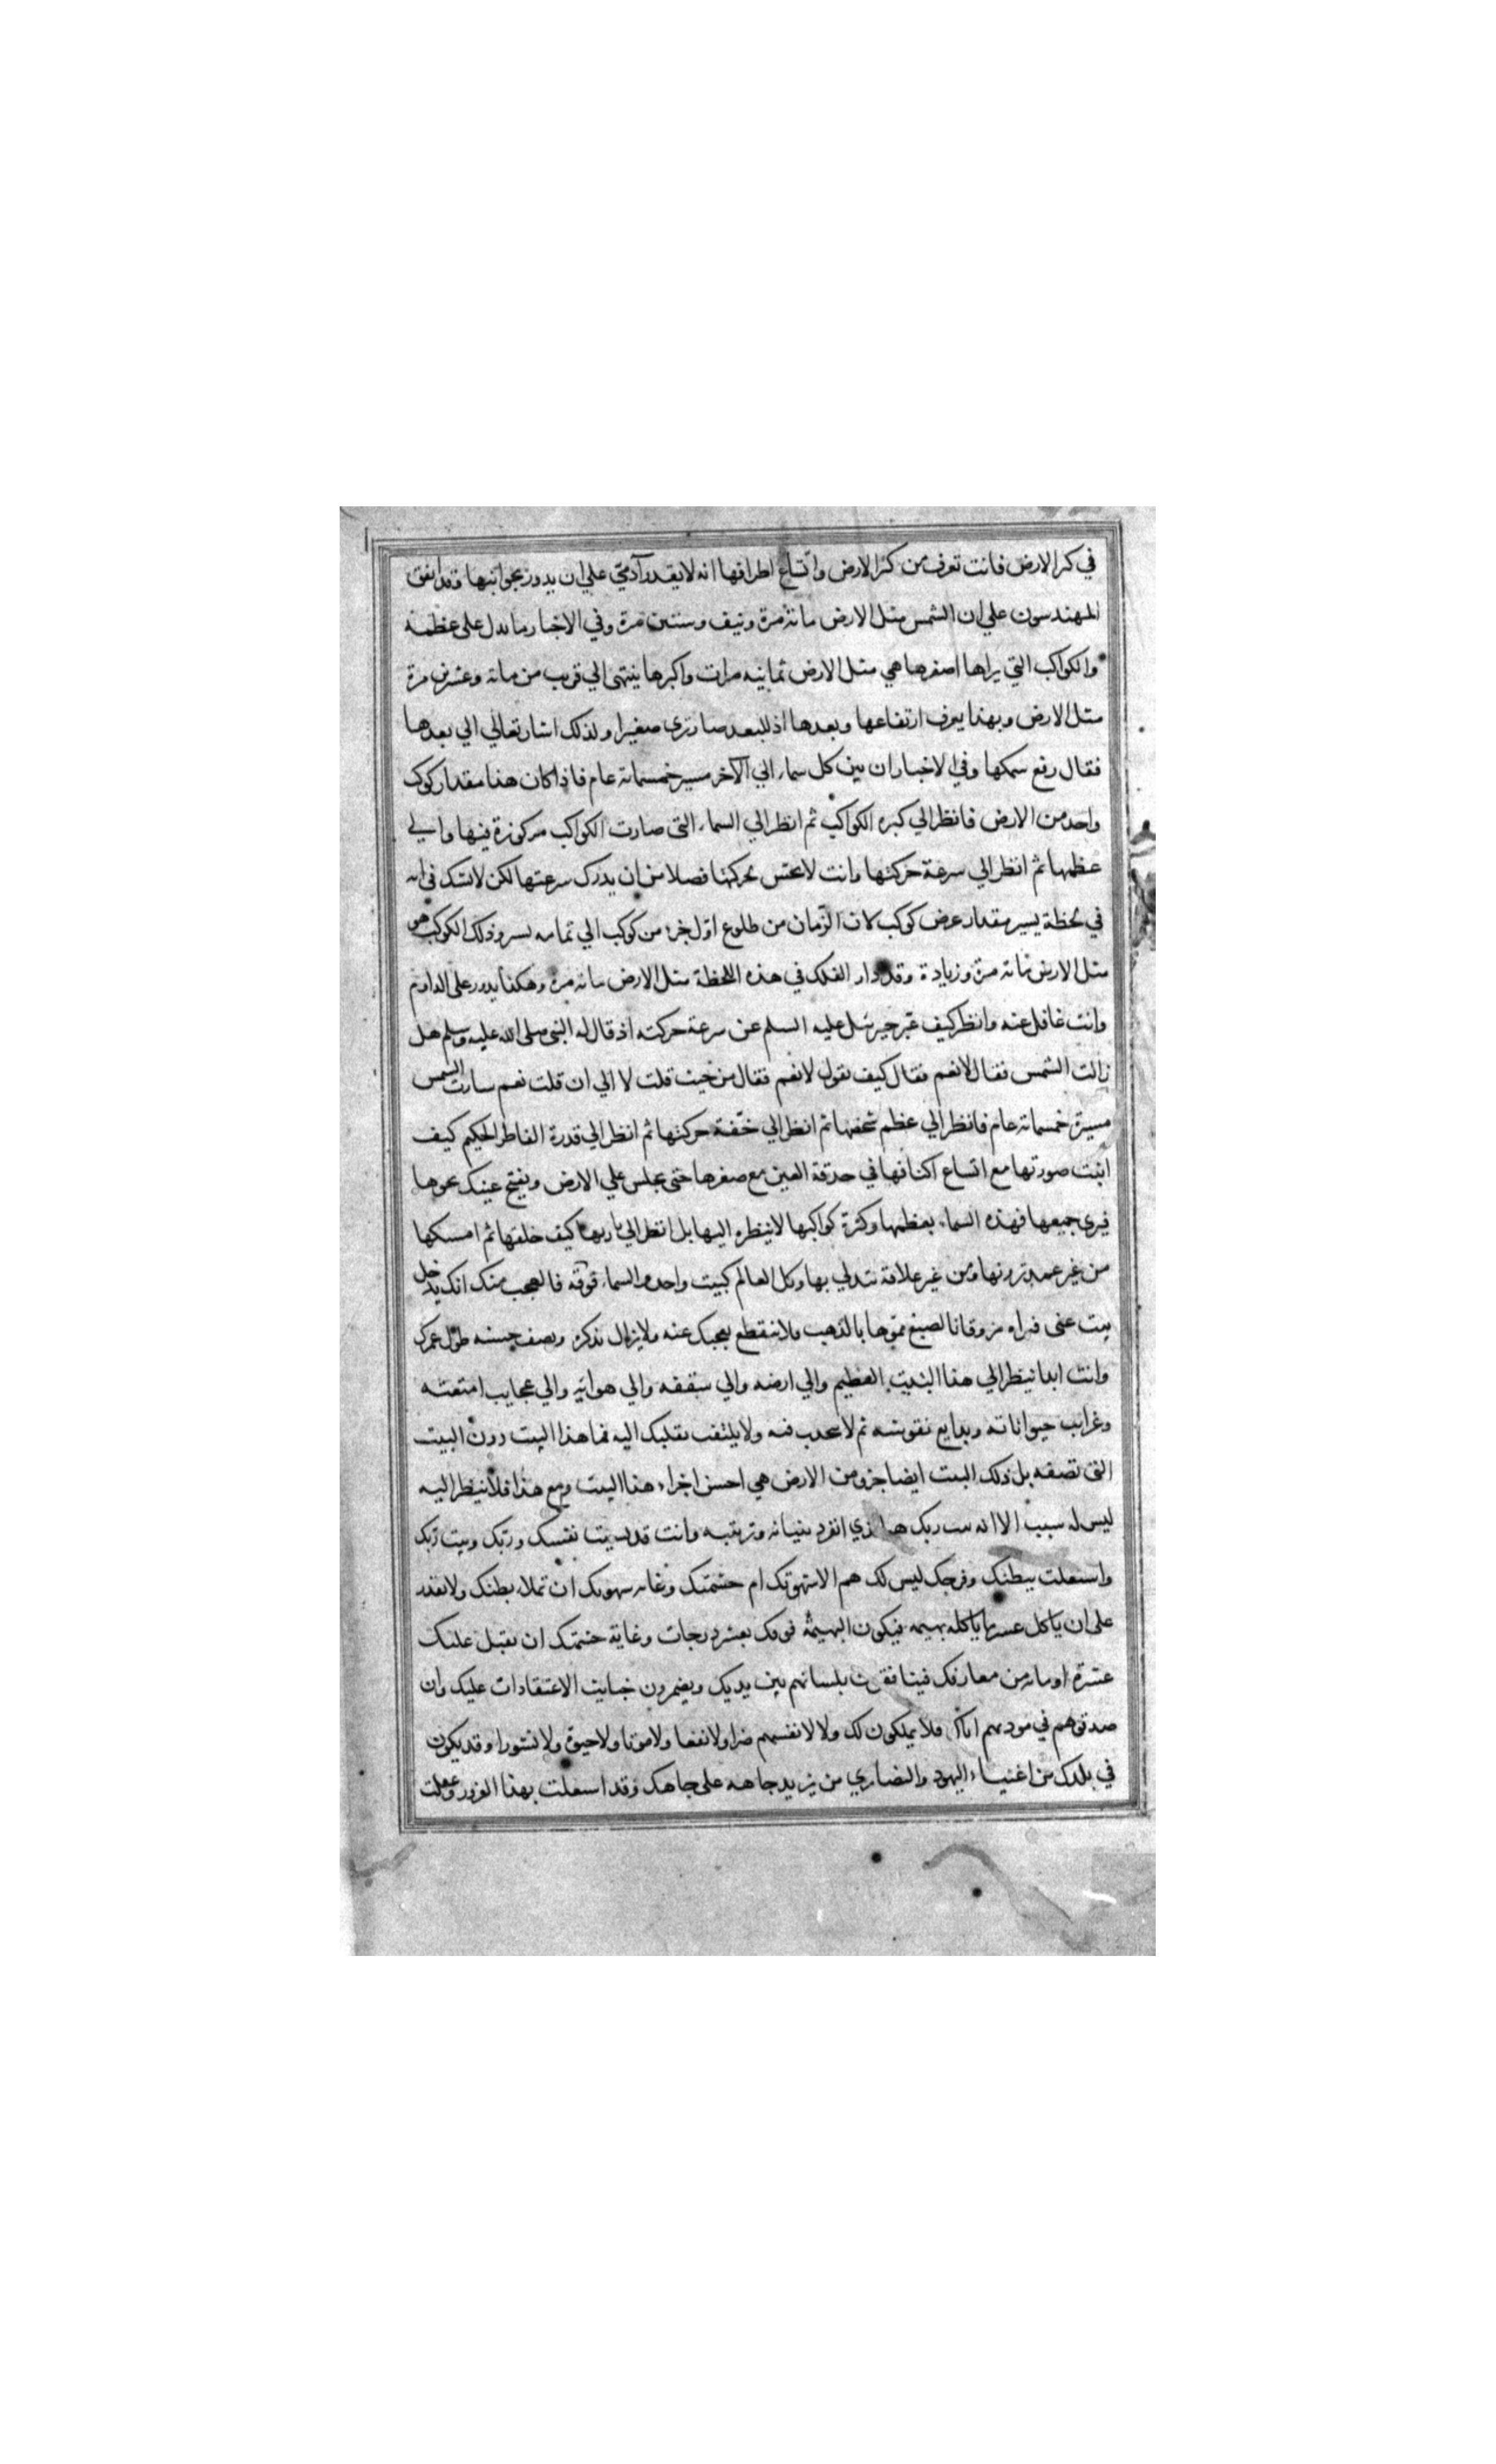 في كبر الارض فانت تعرف من كبر الارض واتساع اطرافها انه لا يقدر آدميّ علي ان يدور بجوانبها وقد اتفق
المهندسون علي ان الشمس مثل الارض مائة مرة ونيف وستين مرة وفي الاخبار ما يدل على عظمه
والكواكب التي يراها اصغرها هي مثل الارض ثمانيه مرات واكبرها ينتهى الي قريب من مائة وعشرين مرة
مثل الارض وبهذا يعرف ارتفاعها وبعدها اذ للبعد صار ترى صغيرا ولذلك اشار تعالي الي بعدها
فقال رفع سمكها وفي الاخبار ان بين كل سماء الي الآخر مسيرة خمسمائة عام فاذا كان هذا مقدار كوكب
واحد من الارض فانظر الي كبره الكواكب ثم انظر الي السماء التى صارت الكواكب مركوزة فيها والي
عظمها ثم انظر الي سرعة حركتها وانت لا تحس بحركتها فضلا من ان يدرك سرعتها لكن لا تشك في انه
في لحظة يسير مقدار عرض كوكب لان الزّمان من طلوع اوّل جزء من كوكب الي تمامه يسير وذلك الكوكب هو
مثل الارض مائة مرة وزيادة وقد دار الفلك في هذه اللحظة مثل الارض مائة مرة وهكذا يدور على الداوم
وانت غافل عنه وانظر كيف عبّر جبرئيل عليه السلم عن سرعة حركته اذ قال له النبى صلى الله عليه وسلم هل
زالت الشمس فقال لا نعم فقال كيف تقول لا نعم فقال من حيث قلت لا الي ان قلت نعم سارت الشمس
مسيرة خمسمائة عام فانظر الي عظم شخصها ثم انظر الي خفّة حركتها ثم انظر الي قدرة الفاطر الحكيم كيف
اثبت صورتها مع اتساع اكنافها في حدقة العين مع صغرها حتى يجلس علي الارض ويفتح عينك نحوها
فيرى جميعها فهذه السماء بعظمها وكثرة كواكبها لا ينظر اليها بل انظر الي بارئها كيف خلقها ثم امسكها
من غير عمد ترونها ومن غير علاقة تتدلي بها وكل العالم كبيت واحد والسماء فوقه فالعجب منك انك يدخل
بيت غنى فيراه مزوقا بالصبغ مموّها بالذهب ولا ينقطع تعجبك عنه ولا يزال يذكره ويصف حسنه طول عمرك
وانت ابدا ينظر الي هذا البيت العظيم والي ارضه والي سقفه والي هوائه والي عجايب امتعته
وغرايب حيواناته وبدايع نقوشه ثم لا يتحدث فيه ولا يلتفت بقلبك اليه فما هذا البيت دون البيت
التى تصفه بل ذلك البيت ايضا جزو من الارض هي احسن اجزاء هذا البيت ومع هذا فلا ينظر اليه
ليس له سبب الا انه بيت ربك هو الذي انفرد ببنيانه وترتيبه وانت قد نسيت نفسك وربّك وبيت ربّك
واشتغلت ببطنك وفرجك ليس لك هم الا شهوتك ام حشمتك وغاية شهوتك ان تملاء بطنك ولا يقدر
على ان ياكل عشر ما ياكله بهيمه فيكون البهيمة فوقك بعشر درجات وغاية حشمتك ان يقبل عليك
عشرة او مائة من معارفك فينافقون بلسانهم بين يديك ويضمرون خبايث الاعتقادات عليك وان
صدقوهم في مودتهم اياك فلا يملكون لك ولا لانفسهم ضرا ولا نفعا ولا موتا ولا حيوة ولا نشورا وقد يكون
في بلدك من اغنياء اليهود والنصاري من يزيد جاهه على جاهك وقد اشتغلت بهذا الغرور وغفلت